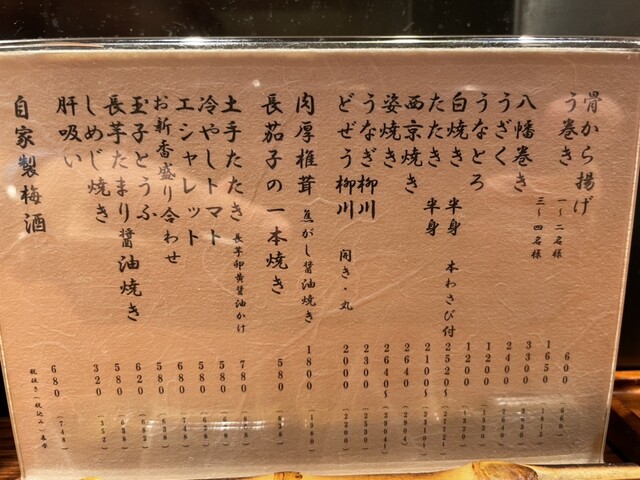 骨から揚げ 600
う巻き 一〜二名様 1650
三〜四名様 3300
八幡巻き 2400
うざく 1200
うなとろ 1200 (1320)
白焼き 半身 本わさび付 2520〜 (2772〜)
たたき 半身 2100〜 (2310〜)
西京焼き 2640 (2904)
姿焼き 2640〜 (2904〜)
うなぎ柳川 2300 (2530)
どぜう柳川 開き・丸 2000 (2200)
肉厚椎茸 焦がし醤油焼き 1800 (1980)
長茄子の一本焼き 580 (638)
土手たたき 長芋卵黄醤油かけ 780 (858)
冷やしトマト 580 (638)
エシャレット 580 (638)
お新香盛り合わせ 680 (748)
玉子とうふ 580 (638)
長芋たまり醤油焼き 620 (682)
しめじ焼き 580 (638)
肝吸い 320 (352)
自家製梅酒 680 (748)